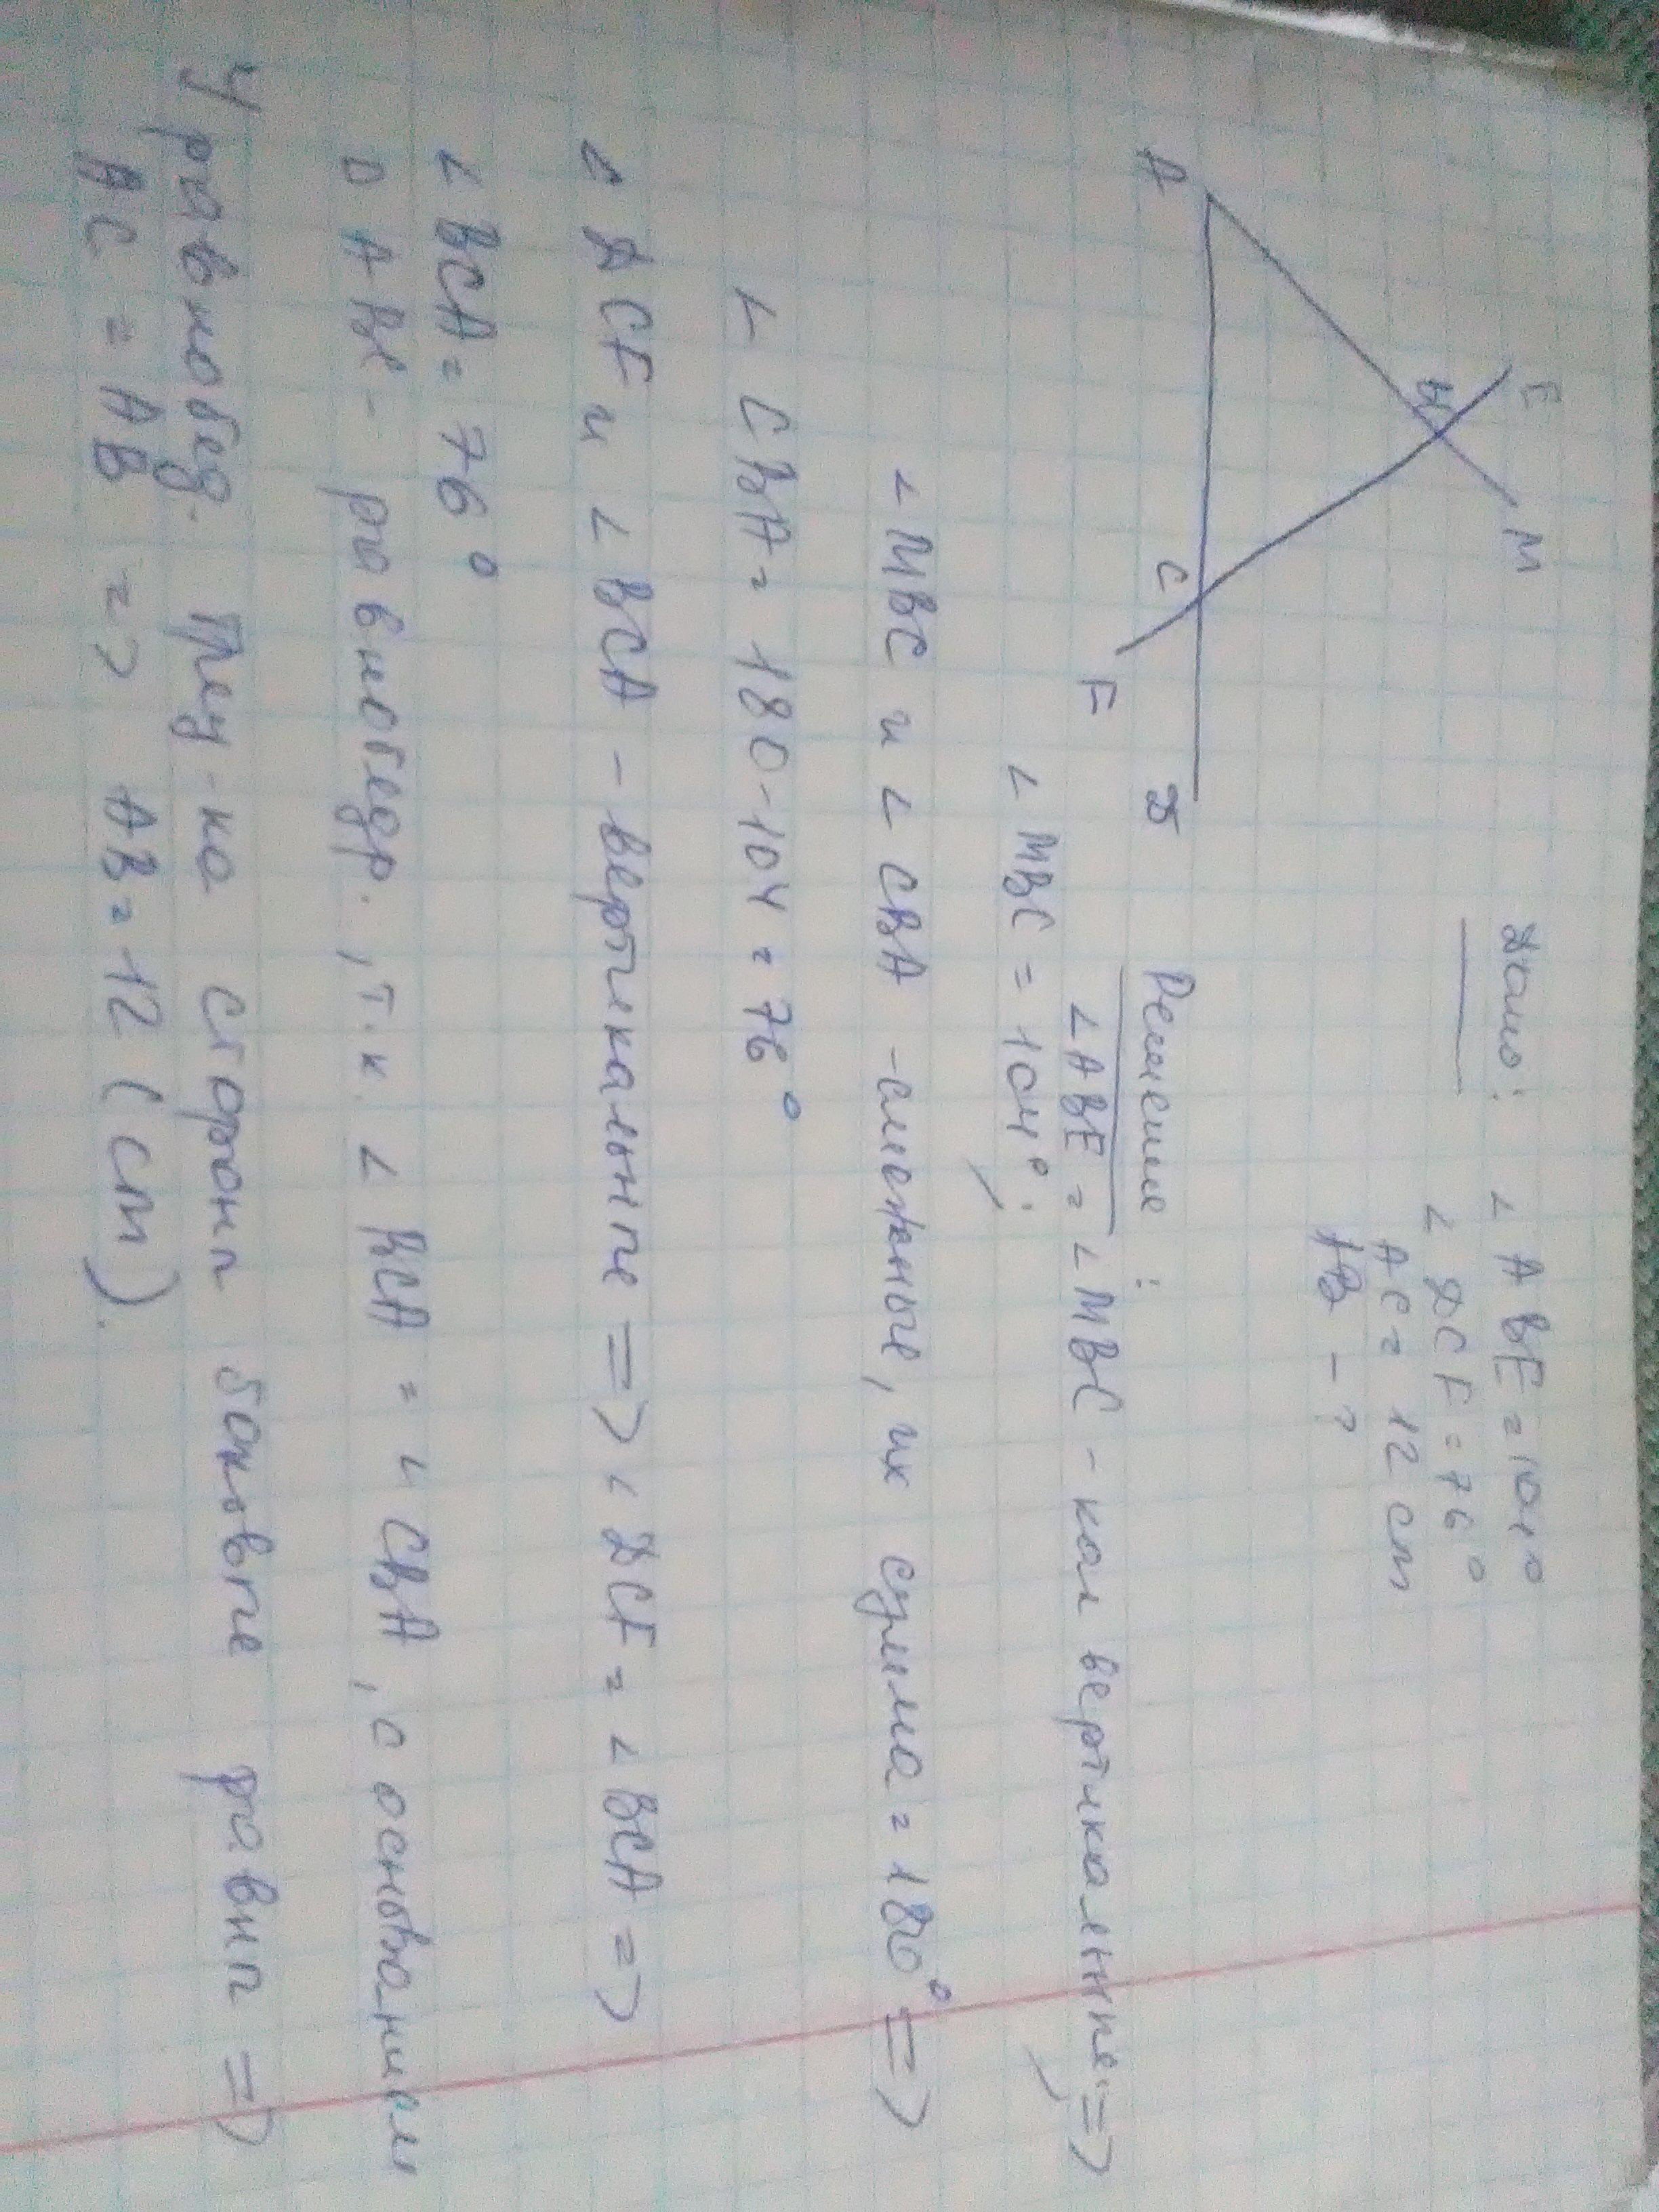 E
M
B
A
C
F
D
Дано: ∠ABE=104°
∠DCF=76°
AC=12 см
AB - ?
Решение:
∠ABE=∠MBC - как вертикальные =>
∠MBC = 104°;
∠MBC и ∠CBA - смежные, их сумма = 180° =>
∠CBA= 180-104 = 76°
∠DCF и ∠BCA - вертикальные => ∠DCF = ∠BCA =>
∠BCA= 76°
∆ ABC - равнобедр., т.к. ∠BCA = ∠CBA, с основанием
У равнобед. треу-ка стороны боковые равны =>
AC = AB => AB=12 (см).